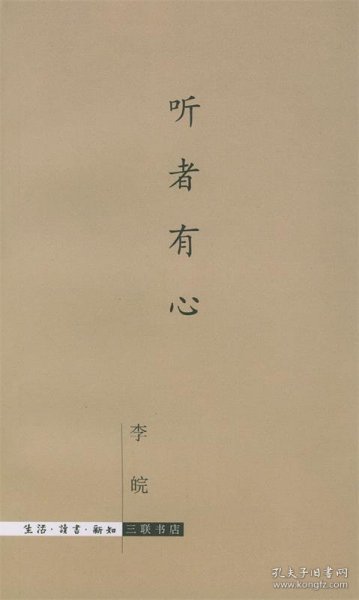 听者有心
李皖
生活·讀書·新知 三联书店
孔夫子旧书网
www.kongfz.com